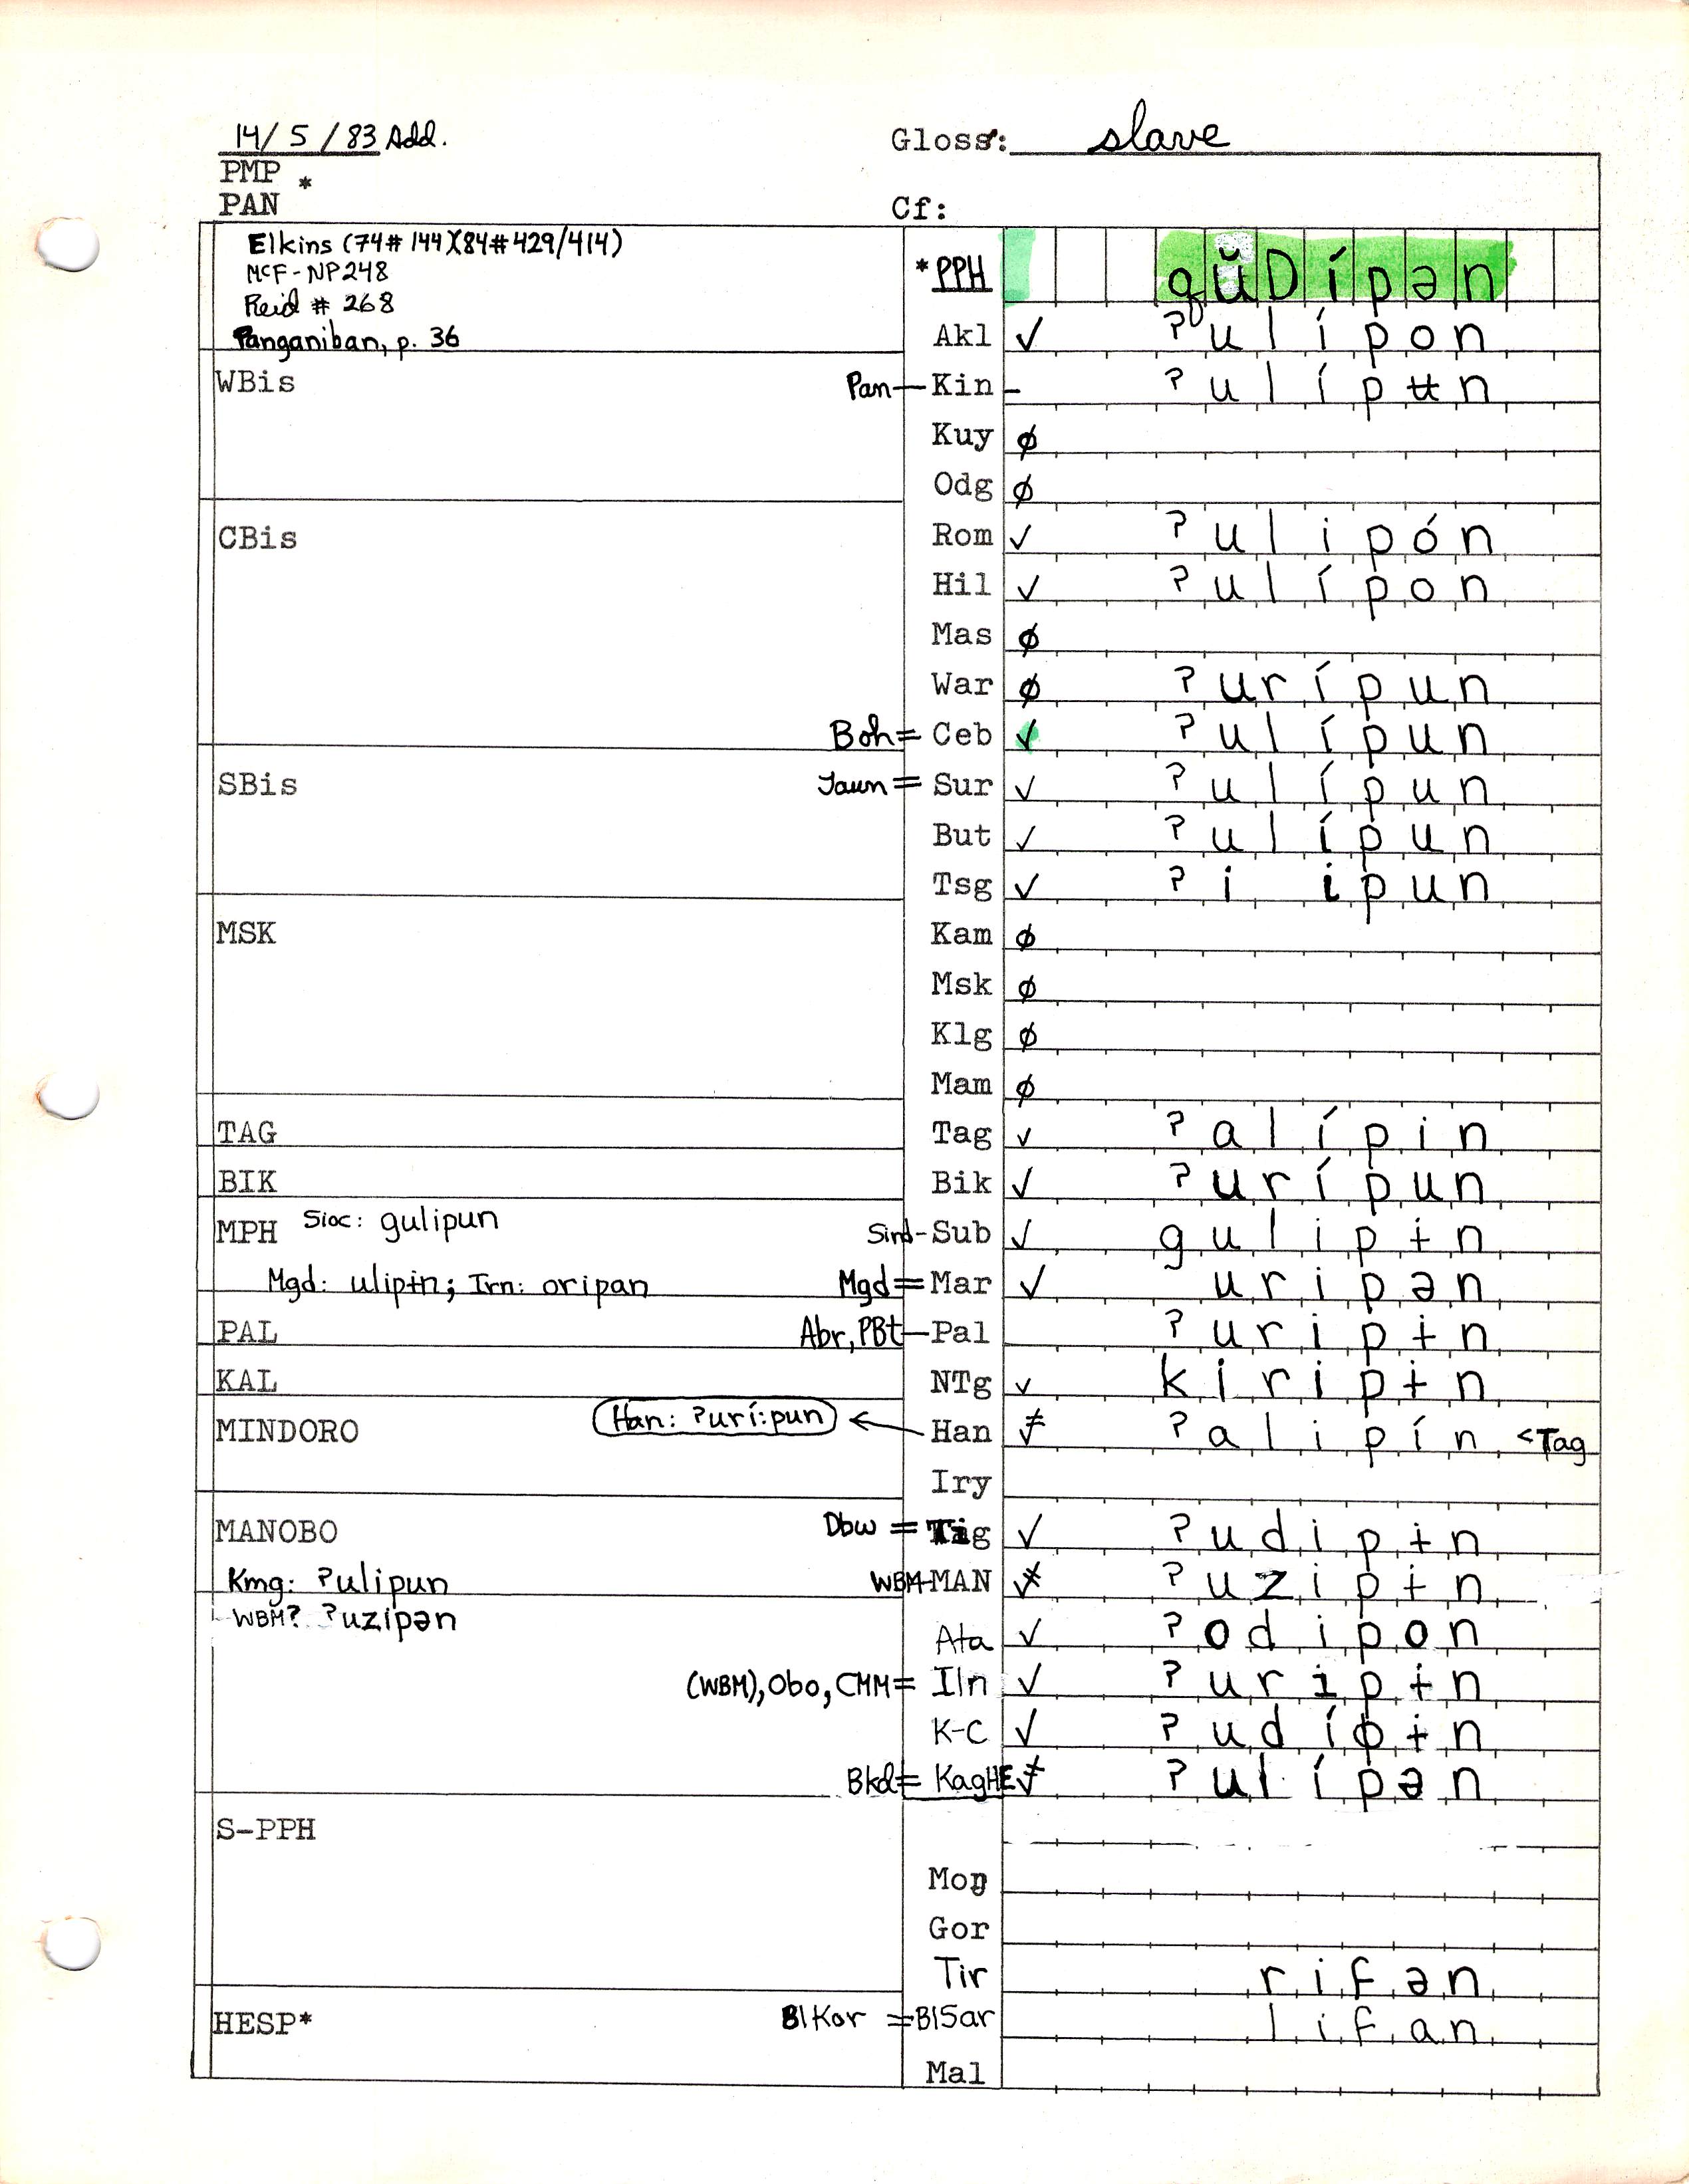 14/5/83 Add. Gloss: slave
PMP *
PAN Cf:
Elkins (74#144)(84#429/414)
McF-NP248
Reid # 268
Panganiban, p. 36
*PPH qŭDípən
Akl ✓ ʔulípon
WBis Pan– Kin – ʔulípʉn
Kuy ø
Odg ø
CBis Rom ✓ ʔulipón
Hil ✓ ʔulípon
Mas ø
War ø ʔurípun
Boh= Ceb ✓ ʔulípun
SBis Jaun= Sur ✓ ʔulípun
But ✓ ʔulípun
Tsg ✓ ʔi ipun
MSK Kam ø
Msk ø
Klg ø
Mam ø
TAG Tag ✓ ʔalípin
BIK Bik ✓ ʔurípun
MPH Sioc: gulipun Sind- Sub ✓ gulipɨn
Mgd: ulipɨn; Irn: oripan Mgd= Mar ✓ uripən
PAL Abr, PBt– Pal ʔuripɨn
KAL NTg ✓ kiripɨn
MINDORO Han: ʔurí:pun ← Han ≠ ʔalipín <Tag
Iry
MANOBO Dbw = Tig ✓ ʔudipɨn
Kmg: ʔulipun WBM- MAN ≠ ʔuzipɨn
WBM? ʔuzipən
Ata ✓ ʔodipon
(WBM), Obo, CMM= Iln ✓ ʔuripɨn
K-C ✓ ʔudíɸɨn
Bkd= KagHE ≠ ʔulípən
S-PPH
Moŋ
Gor
Tir rifən
HESP* BlKor = BlSar lifan
Mal